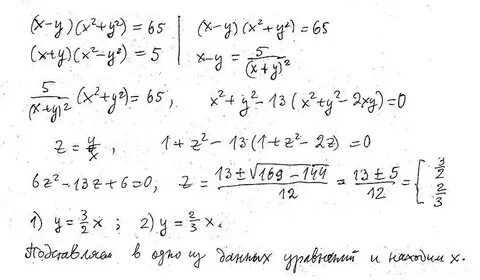 (x-y)(x²+y²)=65 | (x-y)(x²+y²)=65
(x+y)(x²-y²)=5 | x-y=5/(x+y)²
5/(x+y)² (x²+y²)=65, x²+y²-13(x²+y²-2xy)=0
z=y/x, 1+z²-13(1+z²-2z)=0
6z²-13z+6=0, z=(13±√(169-144))/12=(13±5)/12={3/2 2/3
1) y=3/2 x; 2) y=2/3 x.
Подставляем в одно из данных уравнений и находим x.